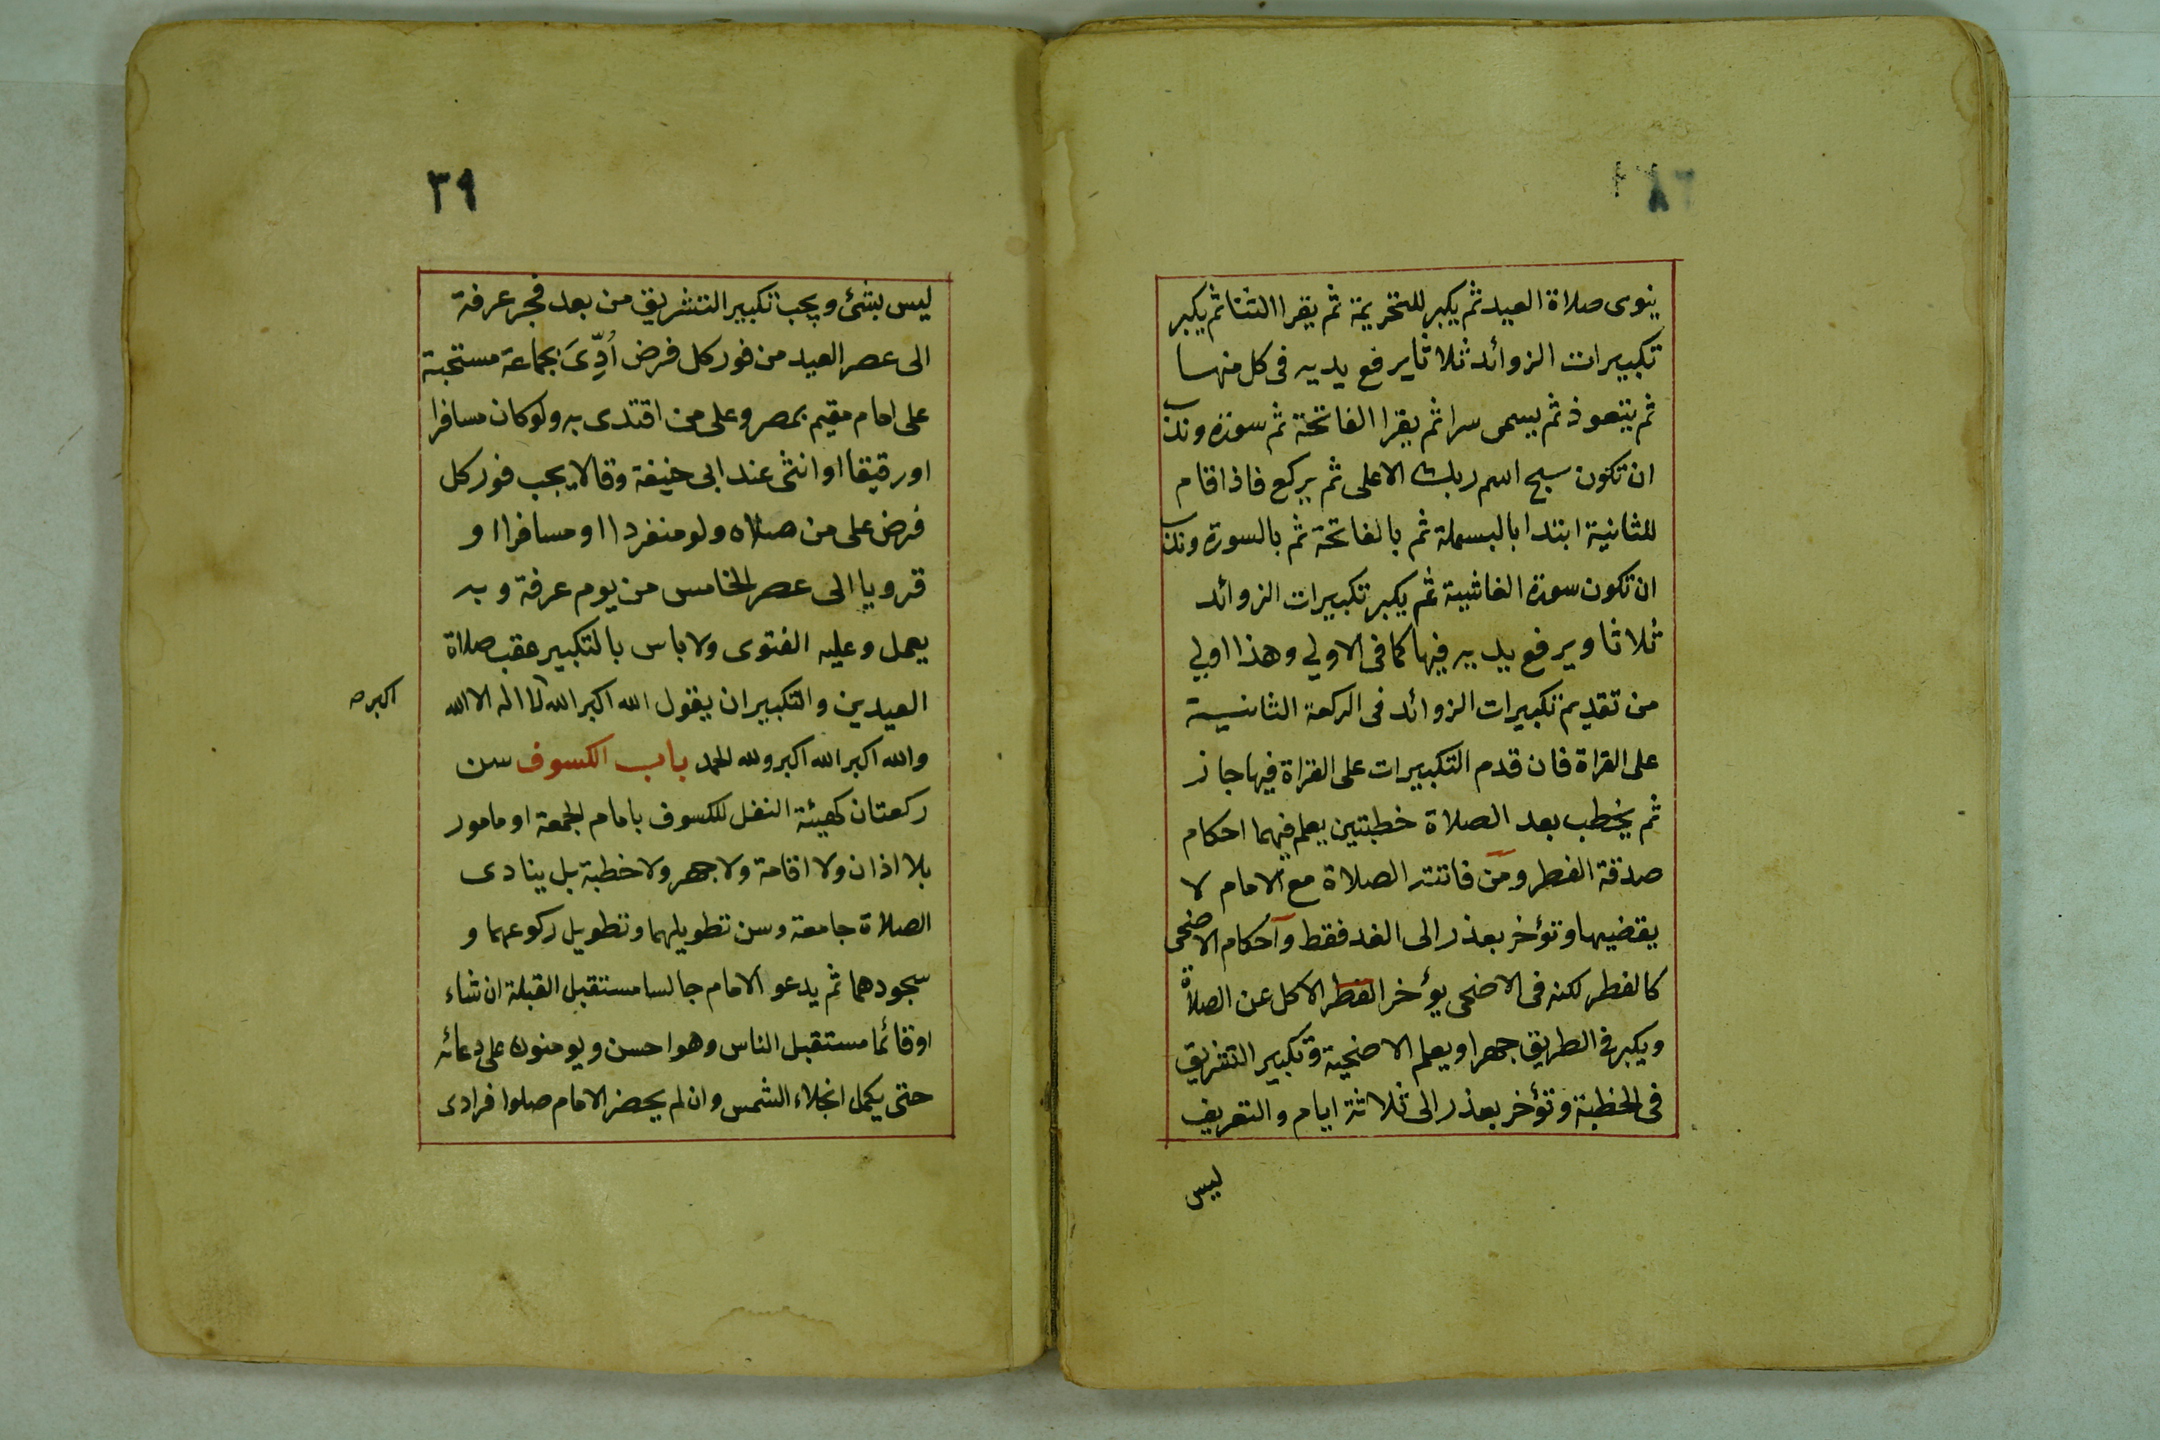 ينوى صلاة العيد ثم يكبر للتحريمة ثم يقرا الثنا ثم يكبر
تكبيرات الزوائد ثلاثا يرفع يديه فى كل منها
ثم يتعوذ ثم يسمى سرا ثم يقرا الفاتحة ثم سورة وندب
ان تكون سبح اسم ربك الاعلى ثم يركع فاذا قام
للثانية ابتدا بالبسملة ثم بالفاتحة ثم بالسورة وندب
ان تكون سورة الغاشية ثم يكبر تكبيرات الزوائد
ثلاثا ويرفع يديه فيها كما فى الاولي وهذا اولي
من تقديم تكبيرات الزوائد فى الركعة الثانية
على القراة فان قدم التكبيرات على القراة فيها جاز
ثم يخطب بعد الصلاة خطبتين يعلم فيهما احكام
صدقة الفطر ومن فاتته الصلاة مع الامام لا
يقضيها وتؤخر بعذر الى الغد فقط وآحكام الاضحى
كالفطر لكنه فى الاضحى يؤخر الفطر الاكل عن الصلاة
ويكبر فى الطريق جهرا ويعلم الاضحية وتكبير التشريق
فى الخطبة وتؤخر بعذر الى ثلاثة ايام والتعريف
ليس
٣٩
ليس بشئ ويجب تكبير التشريق من بعد فجر عرفة
الى عصر العيد من فور كل فرض أُدِّىَ بجماعة مستحبة
على امام مقيم بمصر وعلى من اقتدى به ولو كان مسافرا
او رقيقا او انثى عند ابى حنيفة وقالا يجب فور كل
فرض على من صلاه ولو منفردا او مسافرا او
قرويا الى عصر الخامس من يوم عرفة وبه
يعمل وعليه الفتوى ولا باس بالتكبير عقب صلاة
العيدين والتكبير ان يقول الله اكبر الله لا اله الا الله
اكبر صه
والله اكبر الله اكبر ولله الحمد باب الكسوف سن
ركعتان كهيئة النفل للكسوف بامام الجمعة او مامور
بلا اذان ولا اقامة ولا جهر ولا خطبة بل ينادى
الصلاة جامعة وسن تطويلهما وتطويل ركوعهما و
سجودهما ثم يدعو الامام جالسا مستقبل القبلة ان شاء
او قائما مستقبل الناس وهو احسن ويومنون على دعائه
حتى يكمل انجلاء الشمس وان لم يحضر الامام صلوا فرادى